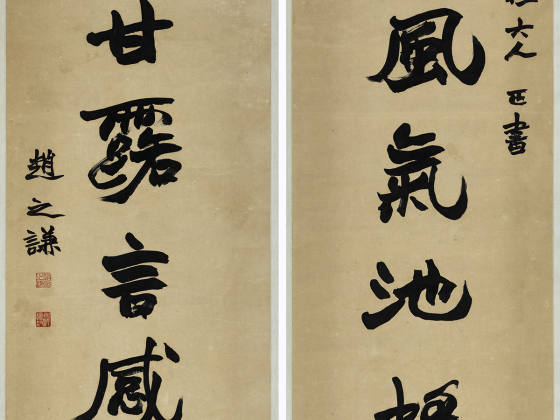 大人 正書
風氣池
甘露言感
趙之謙